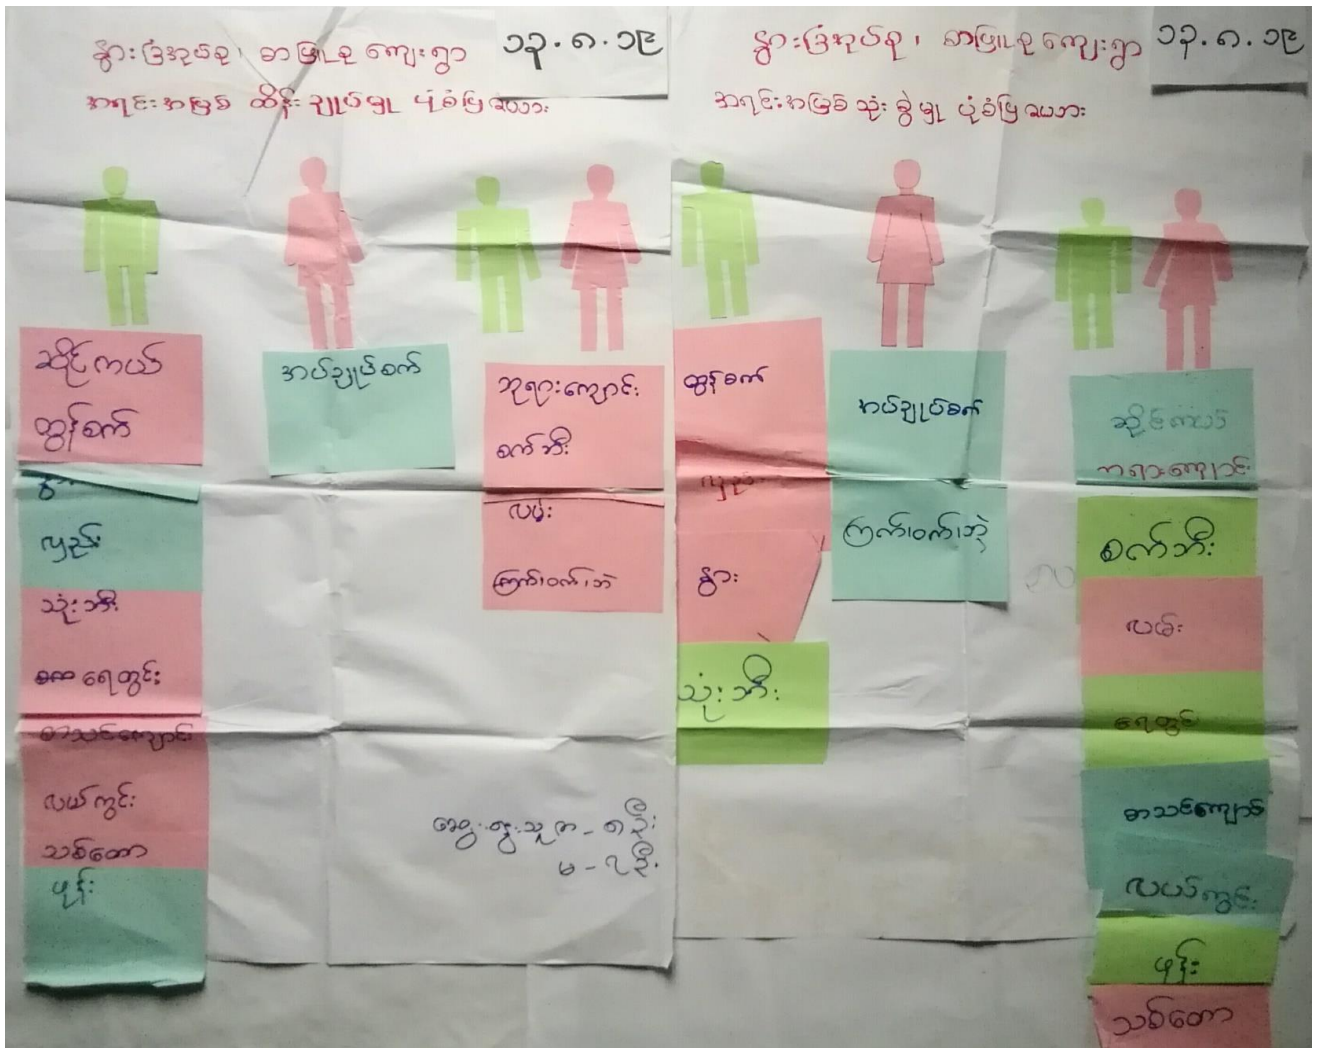 နွားခြံအုပ်စု၊ စာဖြူစု ကျေးရွာ
၁၃.၈.၁၉
အရင်းအမြစ် ထိန်းချုပ်မှု ပုံစံပြ ဇယား
ဆိုင်ကယ်
ထွန်စက်
နွား
လှည်း
သုံးဘီး
ရေတွင်း
စာသင်ကျောင်း
လယ်ကွင်း
သစ်တော
ဖုန်း
အပ်ချုပ်စက်
ဘုရားကျောင်း
စက်ဘီး
လမ်း
ကြက်၊ဝက်၊ဘဲ
ဆွေးနွေးသူ ကျ - ၈ဦး
မ - ၇ဦး
နွားခြံအုပ်စု၊ စာဖြူစု ကျေးရွာ
၁၃.၈.၁၉
အရင်းအမြစ် သုံးစွဲမှု ပုံစံပြ ဇယား
ထွန်စက်
လှည်း
နွား
သုံးဘီး
အပ်ချုပ်စက်
ကြက်၊ဝက်၊ဘဲ
ဆိုင်ကယ်
ဘုရားကျောင်း
စက်ဘီး
လမ်း
ရေတွင်
စာသင်ကျောင်
လယ်ကွင်း
ဖုန်း
သစ်တော